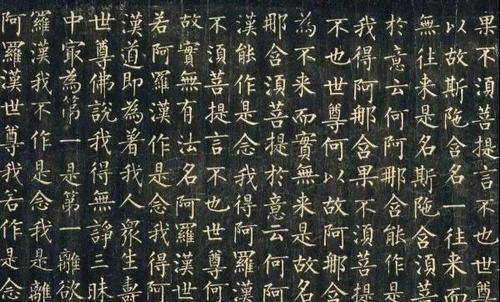 果不湏菩提言不也世尊
以故斯陁含名一往来而
無往来是名斯陁含湏菩
於意云何阿那含能作是
我得阿那含果不湏菩提
不也世尊何以故阿那含
為不来而實無来是故名
那含湏菩提於意云何阿
漢能作是念我得阿羅漢
不湏菩提言不也世尊何
故實無有法名阿羅漢世
若阿羅漢作是念我得阿
漢道即為著我人衆生壽
世尊佛說我得無諍三昧
中㝡為第一是第一離欲
羅漢我不作是念我是離
阿羅漢世尊我若作是念